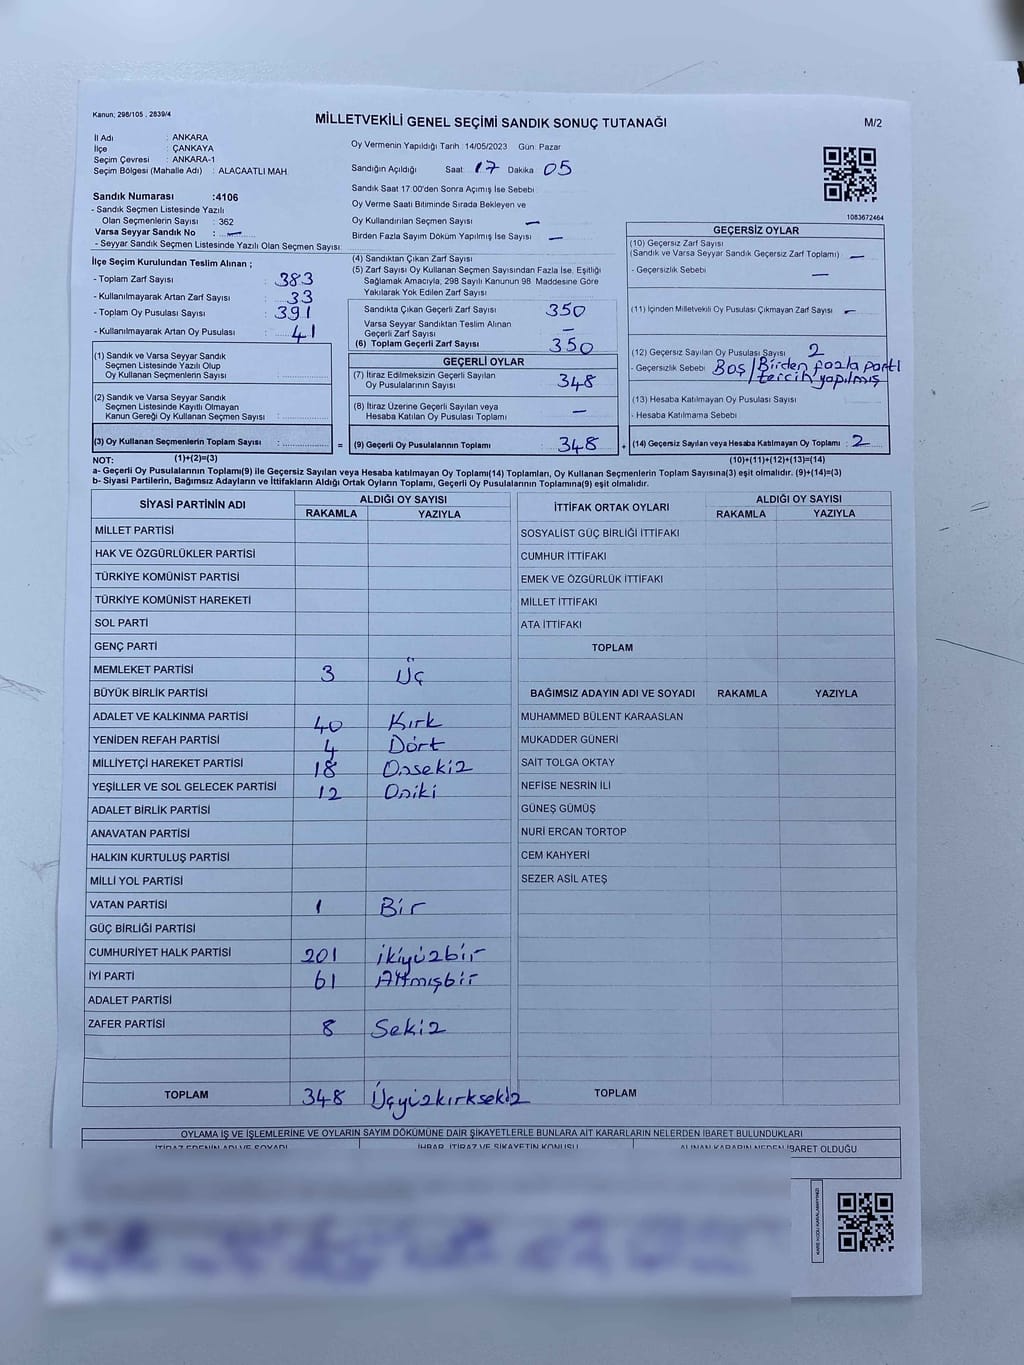 Kanun; 298/105 , 2839/4
MİLLETVEKİLİ GENEL SEÇİMİ SANDIK SONUÇ TUTANAĞI
M/2
İl Adı : ANKARA
İlçe : ÇANKAYA
Seçim Çevresi : ANKARA-1
Seçim Bölgesi (Mahalle Adı) : ALACAATLI MAH.
Sandık Numarası :4106
- Sandık Seçmen Listesinde Yazılı
Olan Seçmenlerin Sayısı : 362
Varsa Seyyar Sandık No : —
- Seyyar Sandık Seçmen Listesinde Yazılı Olan Seçmen Sayısı:
Oy Vermenin Yapıldığı Tarih :14/05/2023 Gün: Pazar
Sandığın Açıldığı Saat: 17 Dakika 05
Sandık Saat 17:00'den Sonra Açımış İse Sebebi
Oy Verme Saati Bitiminde Sırada Bekleyen ve
Oy Kullandırılan Seçmen Sayısı —
Birden Fazla Sayım Döküm Yapılmış İse Sayısı —
1083672464
İlçe Seçim Kurulundan Teslim Alınan ;
- Toplam Zarf Sayısı : 383
- Kullanılmayarak Artan Zarf Sayısı : 33
- Toplam Oy Pusulası Sayısı : 391
- Kullanılmayarak Artan Oy Pusulası : 41
(1) Sandık ve Varsa Seyyar Sandık
Seçmen Listesinde Yazılı Olup
Oy Kullanan Seçmenlerin Sayısı :
(2) Sandık ve Varsa Seyyar Sandık
Seçmen Listesinde Kayıtlı Olmayan
Kanun Gereği Oy Kullanan Seçmen Sayısı :
(3) Oy Kullanan Seçmenlerin Toplam Sayısı :
(1)+(2)=(3)
(4) Sandıktan Çıkan Zarf Sayısı
(5) Zarf Sayısı Oy Kullanan Seçmen Sayısından Fazla İse, Eşitliği
Sağlamak Amacıyla; 298 Sayılı Kanunun 98. Maddesine Göre
Yakılarak Yok Edilen Zarf Sayısı
Sandıkta Çıkan Geçerli Zarf Sayısı 350
Varsa Seyyar Sandıktan Teslim Alınan
Geçerli Zarf Sayısı —
(6) Toplam Geçerli Zarf Sayısı 350
GEÇERLİ OYLAR
(7) İtiraz Edilmeksizin Geçerli Sayılan
Oy Pusulalarının Sayısı : 348
(8) İtiraz Üzerine Geçerli Sayılan veya
Hesaba Katılan Oy Pusulası Toplamı : —
= (9) Geçerli Oy Pusulalarının Toplamı : 348 +
GEÇERSİZ OYLAR
(10) Geçersiz Zarf Sayısı
(Sandık ve Varsa Seyyar Sandık Geçersiz Zarf Toplamı) —
- Geçersizlik Sebebi —
(11) İçinden Milletvekili Oy Pusulası Çıkmayan Zarf Sayısı —
(12) Geçersiz Sayılan Oy Pusulası Sayısı 2
- Geçersizlik Sebebi Boş/Birden fazla parti
tercih yapılmış
(13) Hesaba Katılmayan Oy Pusulası Sayısı
- Hesaba Katılmama Sebebi
(14) Geçersiz Sayılan veya Hesaba Katılmayan Oy Toplamı : 2
(10)+(11)+(12)+(13)=(14)
NOT:
a- Geçerli Oy Pusulalarının Toplamı(9) ile Geçersiz Sayılan veya Hesaba katılmayan Oy Toplamı(14) Toplamları, Oy Kullanan Seçmenlerin Toplam Sayısına(3) eşit olmalıdır. (9)+(14)=(3)
b- Siyasi Partilerin, Bağımsız Adayların ve İttifakların Aldığı Ortak Oyların Toplamı, Geçerli Oy Pusulalarının Toplamına(9) eşit olmalıdır.
SİYASİ PARTİNİN ADI ALDIĞI OY SAYISI
RAKAMLA YAZIYLA
MİLLET PARTİSİ
HAK VE ÖZGÜRLÜKLER PARTİSİ
TÜRKİYE KOMÜNİST PARTİSİ
TÜRKİYE KOMÜNİST HAREKETİ
SOL PARTİ
GENÇ PARTİ
MEMLEKET PARTİSİ 3 Üç
BÜYÜK BİRLİK PARTİSİ
ADALET VE KALKINMA PARTİSİ 40 Kırk
YENİDEN REFAH PARTİSİ 4 Dört
MİLLİYETÇİ HAREKET PARTİSİ 18 Onsekiz
YEŞİLLER VE SOL GELECEK PARTİSİ 12 Oniki
ADALET BİRLİK PARTİSİ
ANAVATAN PARTİSİ
HALKIN KURTULUŞ PARTİSİ
MİLLİ YOL PARTİSİ
VATAN PARTİSİ 1 Bir
GÜÇ BİRLİĞİ PARTİSİ
CUMHURİYET HALK PARTİSİ 201 ikiyüzbir
İYİ PARTİ 61 Altmışbir
ADALET PARTİSİ
ZAFER PARTİSİ 8 Sekiz
TOPLAM 348 Üçyüzkırksekiz
İTTİFAK ORTAK OYLARI ALDIĞI OY SAYISI
RAKAMLA YAZIYLA
SOSYALİST GÜÇ BİRLİĞİ İTTİFAKI
CUMHUR İTTİFAKI
EMEK VE ÖZGÜRLÜK İTTİFAKI
MİLLET İTTİFAKI
ATA İTTİFAKI
TOPLAM
BAĞIMSIZ ADAYIN ADI VE SOYADI RAKAMLA YAZIYLA
MUHAMMED BÜLENT KARAASLAN
MUKADDER GÜNERİ
SAİT TOLGA OKTAY
NEFİSE NESRİN İLİ
GÜNEŞ GÜMÜŞ
NURİ ERCAN TORTOP
CEM KAHYERİ
SEZER ASİL ATEŞ
TOPLAM
OYLAMA İŞ VE İŞLEMLERİNE VE OYLARIN SAYIM DÖKÜMÜNE DAİR ŞİKAYETLERLE BUNLARA AİT KARARLARIN NELERDEN İBARET BULUNDUKLARI
İTİRAZ EDENİN ADI VE SOYADI İHBAR, İTİRAZ VE ŞİKAYETİN KONUSU ALINAN KARARIN NEDEN İBARET OLDUĞU
KARE KODU KARALAMAYINIZ!